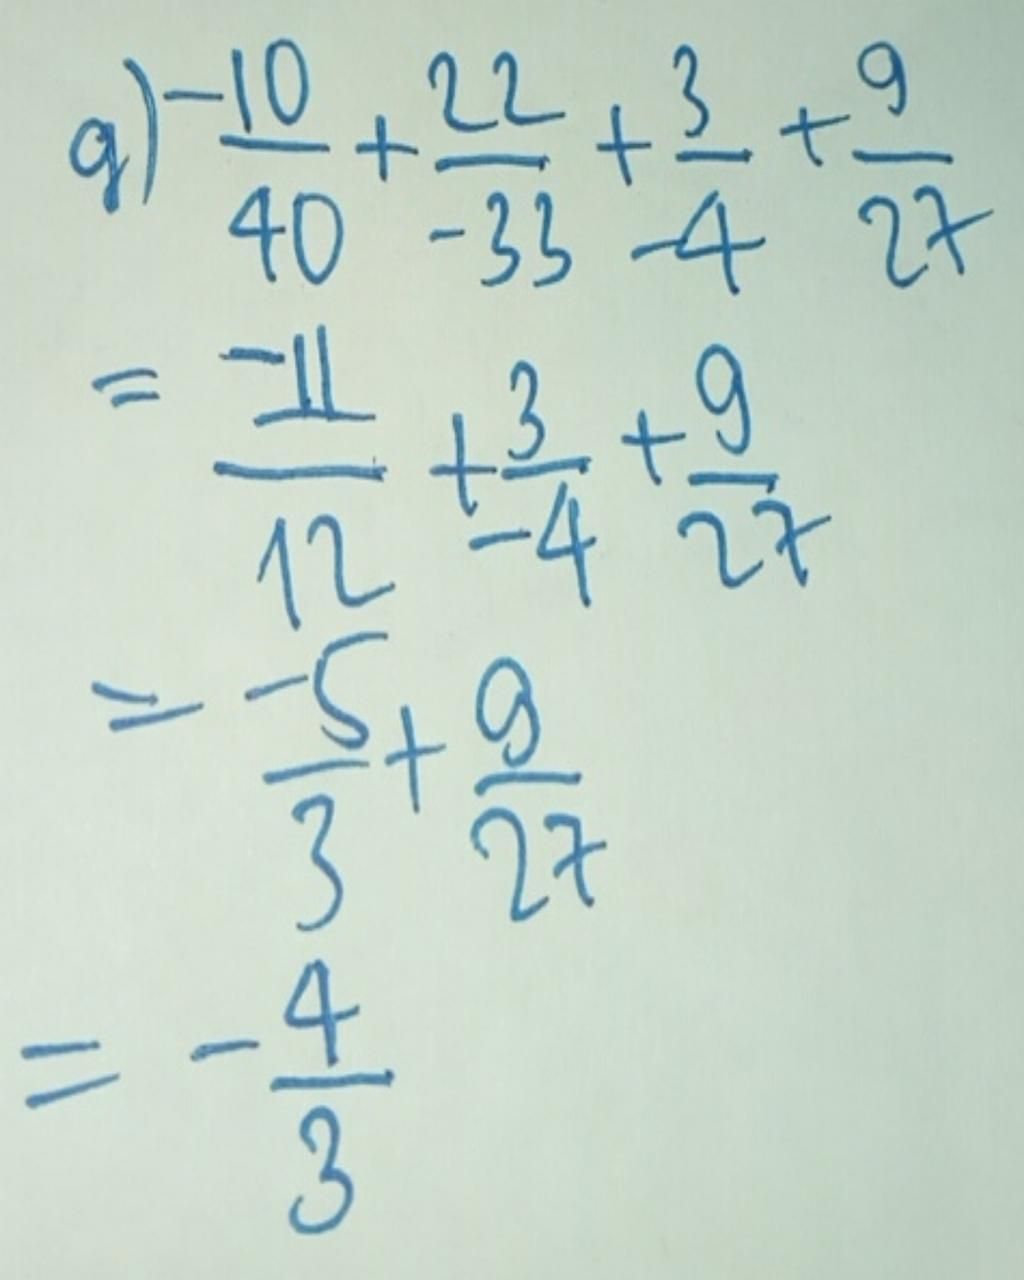 g) -10/40 + 22/-33 + 3/-4 + 9/27
= -11/12 + 3/-4 + 9/27
= -5/3 + 9/27
= -4/3